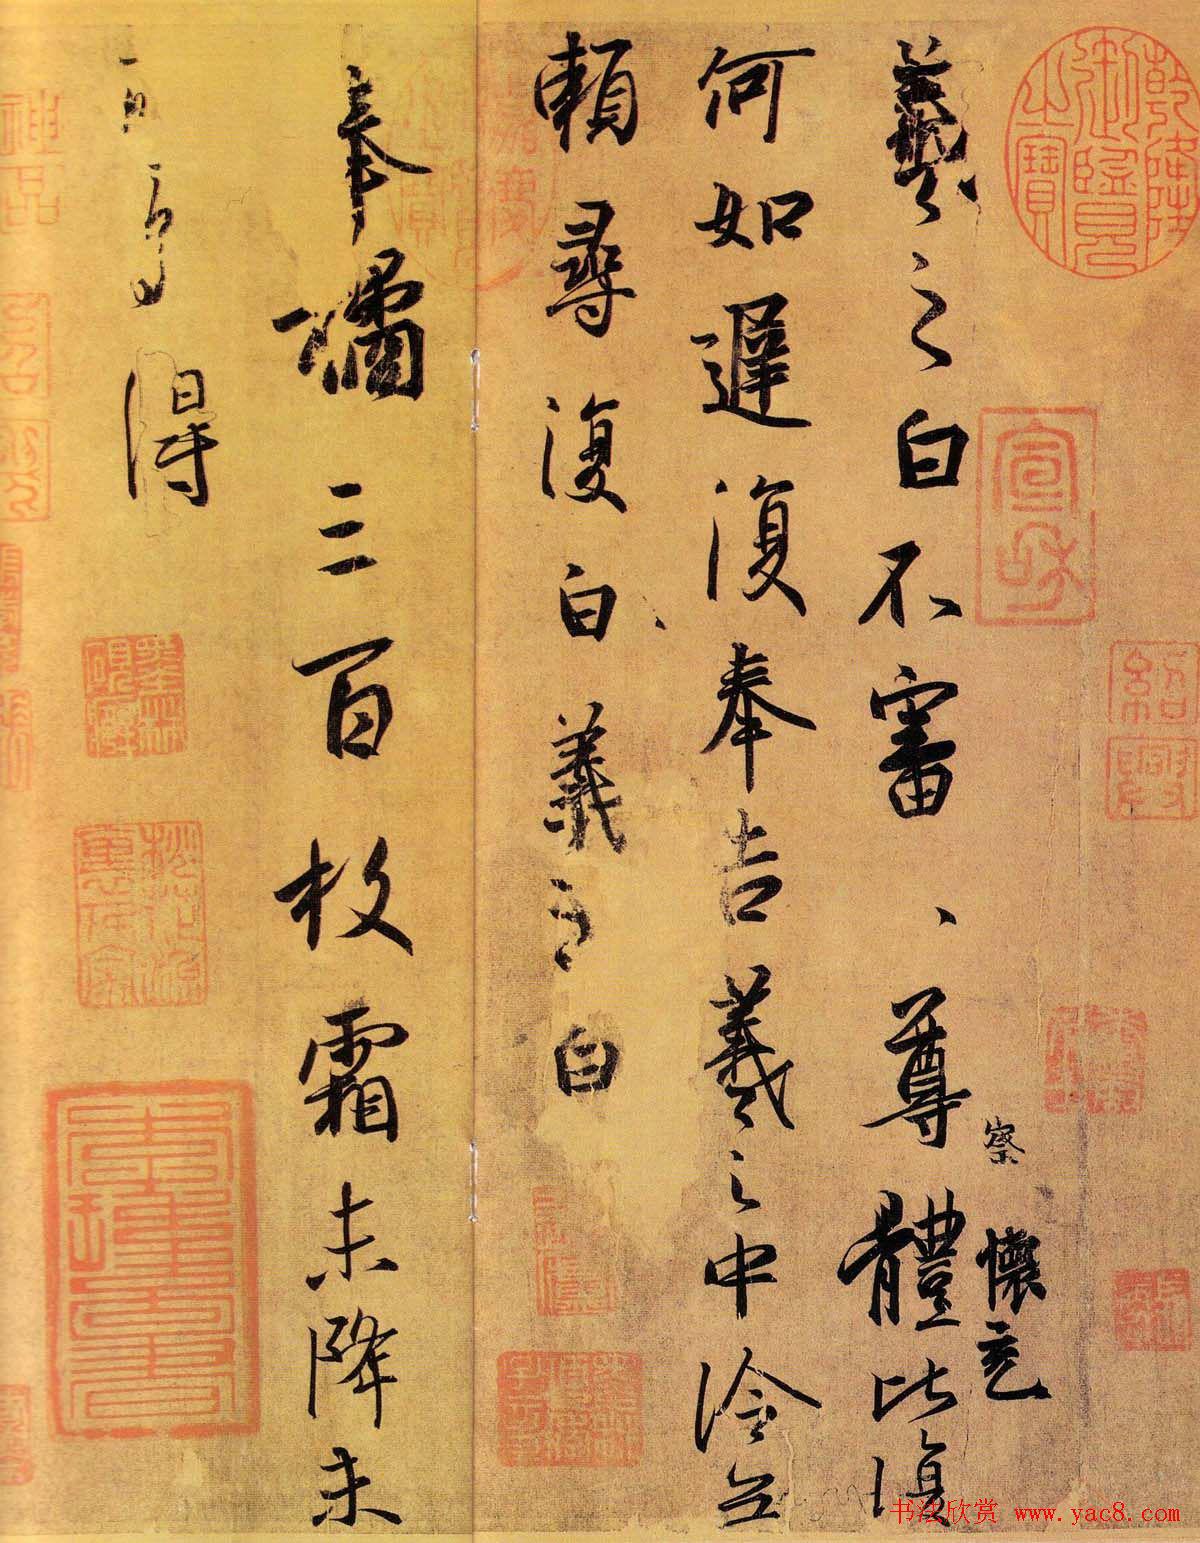 乾隆御覽之寶
宣和
紹興
察
懷充
羲之白不審、尊體比復
何如遲復奉告羲之中冷無
賴尋復白羲之白
奉橘三百枚霜未降未
可多得
神品
书法欣赏 www.yac8.com